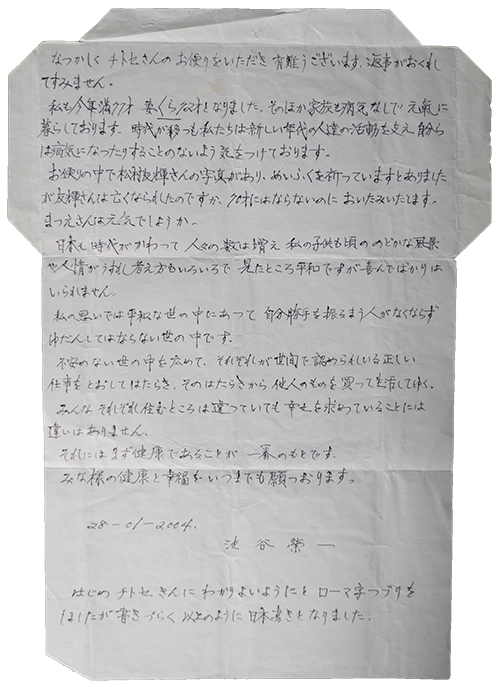 なつかしく チトセさんのお便りをいただき 有難うございます。返事がおくれ
てすみません。
私も今年満77才 妻くら72才となりました。そのほか家族も病気なしで 元氣に
暮らしております。時代が移つも私たちは新しい年代の人達の活動を支え、自分ら
は病氣になったりすることのないよう気をつけております。
お便りの中で松村友輝さんの字真があり、めいふくを祈っていますとありました
が友輝さんは亡くなられたのですか、70才にはならないのに おいたみいたします。
まつえさんは元気でしょうか。
日本も時代がかわって 人々の数は増え 私の子供も頃の のどかな風景
や人情がうすれ 考え方もいろいろで 見たところ平和ですが喜んでばかりは
いられません。
私の思いでは平和な世の中にあって 自分勝手を振るまう人がなくならず
ゆだんしてはならない世の中です。
不安のない世の中を広めて、それぞれが世間で認められている正しい
仕事をとおしてはたらき、そのはたらきから他人のものを買って生活してゆく。
みんな それぞれ住むところは違っていても 幸せを求めていることには
違いはありません。
それにはまず健康であることが 一番のもとです。
みな様の健康と幸福をいつまでも願っおります。
28-01-2004.
池谷榮一
はじめ チトセさんに わかりよいようにと ローマ字つづりを
ましたが書きづらく 以上のように日本書きとなりました。